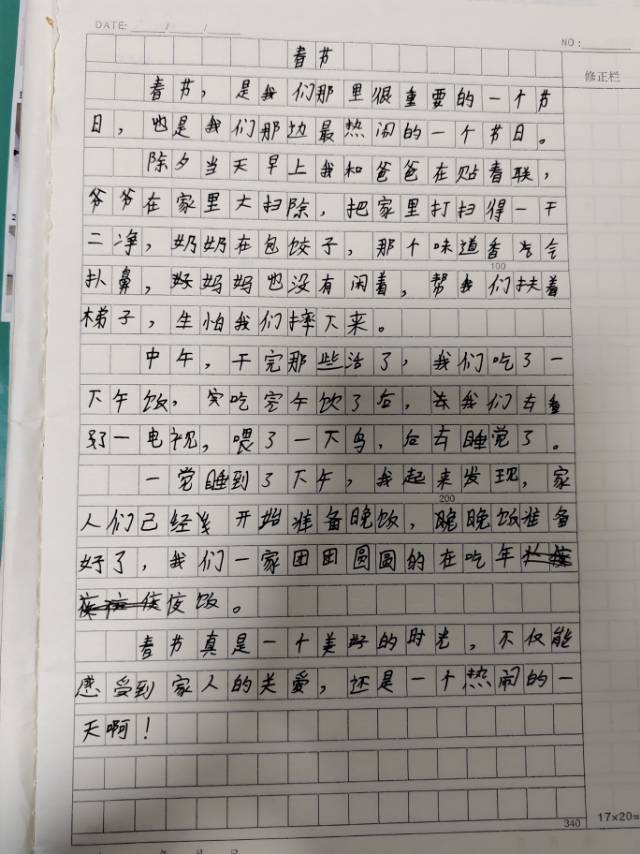 DATE: ___/___/___
NO:______
修正栏
春节
春节，是我们那里很重要的一个节
日，也是我们那边最热闹的一个节日。
除夕当天早上我和爸爸在贴春联，
爷爷在家里大扫除，把家里打扫得一干
二净，奶奶在包饺子，那个味道香气
扑鼻，妈妈也没有闲着，帮我们扶着
100
梯子，生怕我们摔下来。
中午，干完那些活了，我们吃了一
下午饭，吃完午饮了后，我们去看
了一电视，喂了一下鸟，后去睡觉了。
一觉睡到了下午，我起来发现，家
200
人们已经 开始准备晚饭，晚晚饭准备
好了，我们一家团团圆圆的在吃年
夜饭。
春节真是一个美好的时光，不仅能
感受到家人的关爱，还是一个热闹的一
天啊！
340
17×20=